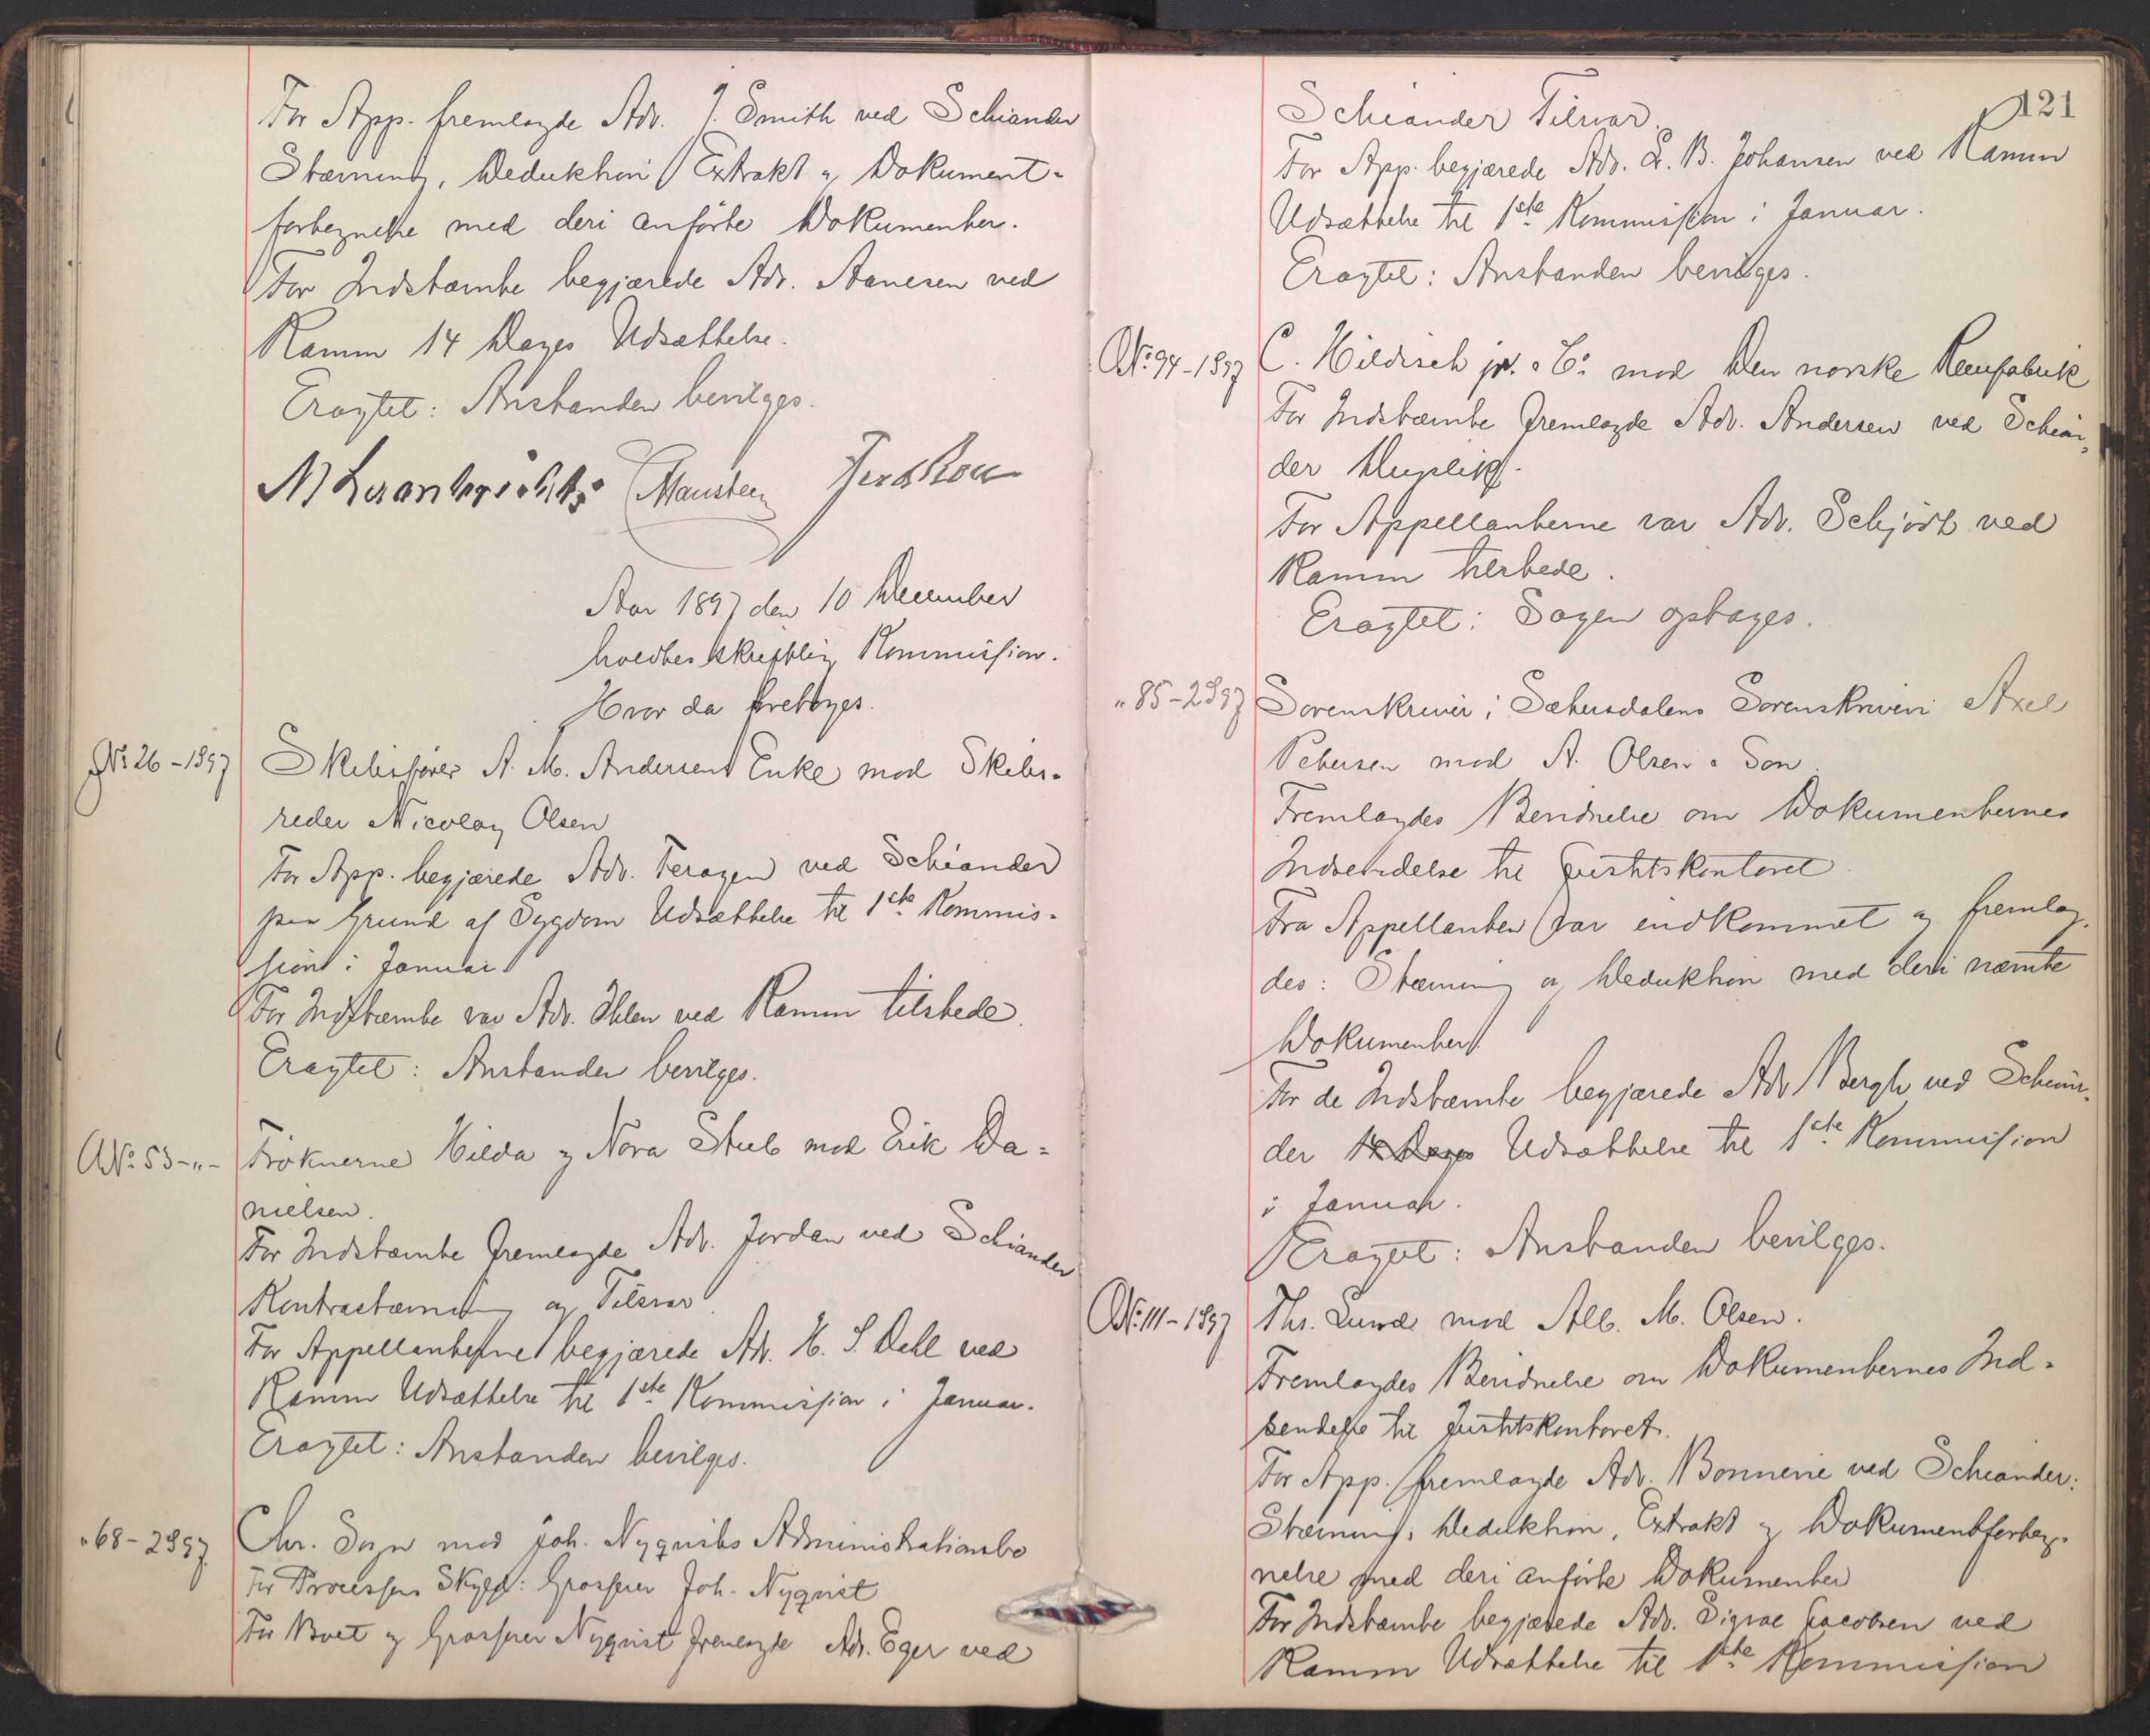 For App. fremlagde Adv. J. Smith ved Schiander
Stævning, Deduktion, Extrakt og Dokument-
fortegnelse med deri anførte Dokumenter.
For Indstævnte begjærede Adv. Aanesen ved
Ramm 14 Dages Udsættelse.
Eragtet: Anstanden bevilges.
Aar 1897 den 10 December
holdtes skriftlig Kommission.
Hvor da foretoges.
No. 26-1897 Skibsfører A. M. Andersens Enke mod Skibs-
reder Nicolay Olsen
For App. begjærede Adv. Feragen ved Schiander
paa Grund af Sygdom Udsættelse til 1ste Kommis-
sion i Januar
For Indstævnte var Adv. Ihlen ved Ramm tilstede.
Eragtet: Anstanden bevilges.
No. 53-"- Frøknerne Hilda og Nora Stub mod Erik Da-
nielsen.
For Indstævnte fremlagde Adv. Jordan ved Schiander
Kontrastævning og Tilsvar.
For Appellanterne begjærede Adv. H. S. Dahl ved
Ramm Udsættelse til 1ste Kommission i Januar.
Eragtet: Anstanden bevilges.
" 68-2897 Chr. mod Joh. Nyqvists Administrationsbo
For Processens Skyld: Grosserer Joh. Nyqvist
For Boet og Grosserer Nyqvist fremlagde Adv. Eger ved
121
Schiander Tilsvar.
For App. begjærede Adv. B. Johansen ved Ramm
Udsættelse til 1ste Kommission i Januar.
Eragtet: Anstanden bevilges.
No. 94-1897 C. Hildisch jr. & Co. mod Den norske Remfabrik
For Indstævnte fremlagde Adv. Andersen ved Schian-
der Duplik.
For Appellanterne var Adv. Schjødt ved
Ramm tilstede.
Eragtet: Sagen optages.
" 85-2897 Sorenskriver i Sætersdalens Sorenskriveri Axel
Petersen mod A. Olsen & Søn.
Fremlagdes Bevidnelse om Dokumenternes
Indsendelse til Justitskontoret
Fra Appellanten var indkommet og fremlag-
des: Stævning og Deduktion med deri nævnte
Dokumenter.
For de Indstævnte begjærede Adv. Bergh ved Schian-
der 14 Dages Udsættelse til 1ste Kommission
i Januar.
Eragtet: Anstanden bevilges.
No. 111-1897 Ths. Lund mod Alb. M. Olsen.
Fremlagdes Bevidnelse om Dokumenternes Ind-
sendelse til Justitskontoret.
For App. fremlagde Adv. Bonnevie ved Schiander:
Stævning, Deduktion, Extrakt og Dokumentforteg-
nelse med deri anførte Dokumenter
For Indstævnte begjærede Adv. Jacobsen ved
Ramm Udsættelse til 1ste Kommission